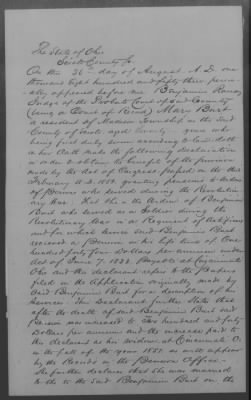 The State of Ohio
County Ss.
On this 26th day of August A.D. one
thousand Eight hundred and fifty three, perso-
nally appeared before me Benjamin
Judge of the Probate Court of said County
(being a Court of Record) Mary Burt
a resident of Madison Township in the said
County of aged Seventy years who
being first duly sworn according to Law doth
on her Oath make the following declaration
in order to obtain the benefit of the provision
made by the Act of Congress passed on the
February A.D. 1853 granting pensions to Widows
of persons who served during the Revolution-
ary War. That she is the Widow of Benjamin
Burt who served as a Soldier during the
Revolutionary War in a Regiment of
and for which service Said Benjamin Burt
received a Pension in his life time of One
hundred forty four Dollars per annum under
Act of June 7, 1832, Payable at Cincinnati
Ohio and this declarant refers to the Papers
filed in the Application originally made by
Said Benjamin Burt for a description of his
services. This declarant further States that
after the death of said Benjamin Burt said
Pension was increased to Two hundred and forty
Dollars per annum and the increase paid to
this declarant as his widow at Cincinnati O.
in the fall of the year 1851. as will appear
by the Records in the Pension Office.
She further declares that she was married
to the said Benjamin Burt on the